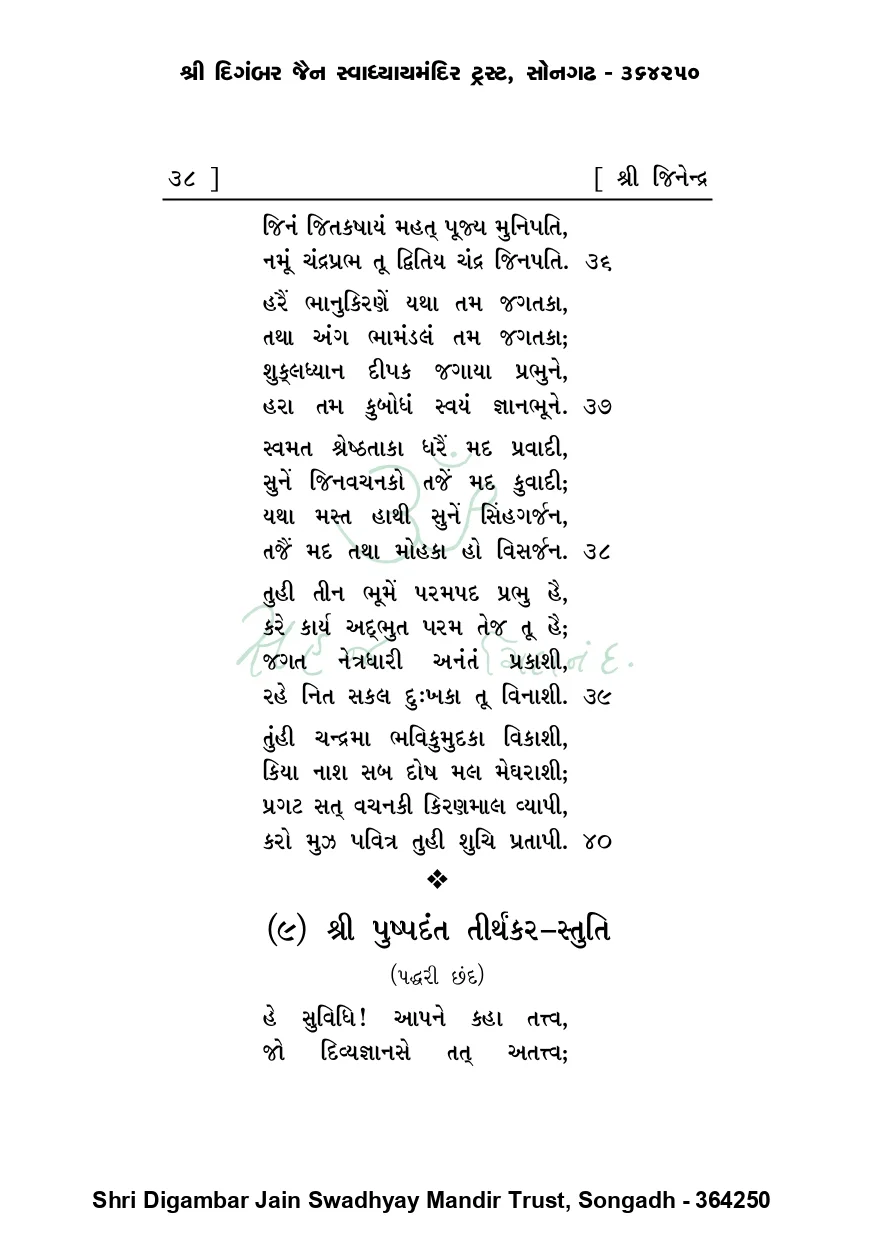 શ્રી દિગંબર જૈન સ્વાધ્યાયમંદિર ટ્રસ્ટ, સોનગઢ - ૩૬૪૨૫૦
૩૮ ] [ શ્રી જિનેન્દ્ર
જિનં જિતકષાયં મહત્ પૂજ્ય મુનિપતિ,
નમૂં ચંદ્રપ્રભ તૂ દ્વિતિય ચંદ્ર જિનપતિ. ૩૬
હરૈં ભાનુકિરણેં યથા તમ જગતકા,
તથા અંગ ભામંડલં તમ જગતકા;
શુક્લધ્યાન દીપક જગાયા પ્રભુને,
હરા તમ કુબોધં સ્વયં જ્ઞાનભૂને. ૩૭
સ્વમત શ્રેષ્ઠતાકા ધરૈં મદ પ્રવાદી,
સુનેં જિનવચનકો તજેં મદ કુવાદી;
યથા મસ્ત હાથી સુનેં સિંહગર્જન,
તજૈં મદ તથા મોહકા હો વિસર્જન. ૩૮
તુહી તીન ભૂમેં પરમપદ પ્રભુ હૈ,
કરે કાર્ય અદ્ભુત પરમ તેજ તૂ હૈ;
જગત નેત્રધારી અનંતં પ્રકાશી,
રહે નિત સકલ દુઃખકા તૂ વિનાશી. ૩૯
તુંહી ચન્દ્રમા ભવિકુમુદકા વિકાશી,
કિયા નાશ સબ દોષ મલ મેઘરાશી;
પ્રગટ સત્ વચનકી કિરણમાલ વ્યાપી,
કરો મુઝ પવિત્ર તુહી શુચિ પ્રતાપી. ૪૦
❖
(૯) શ્રી પુષ્પદંત તીર્થંકર–સ્તુતિ
(પદ્ધરી છંદ)
હે સુવિધિ! આપને કહા તત્ત્વ,
જો દિવ્યજ્ઞાનસે તત્ અતત્ત્વ;
Shri Digambar Jain Swadhyay Mandir Trust, Songadh - 364250